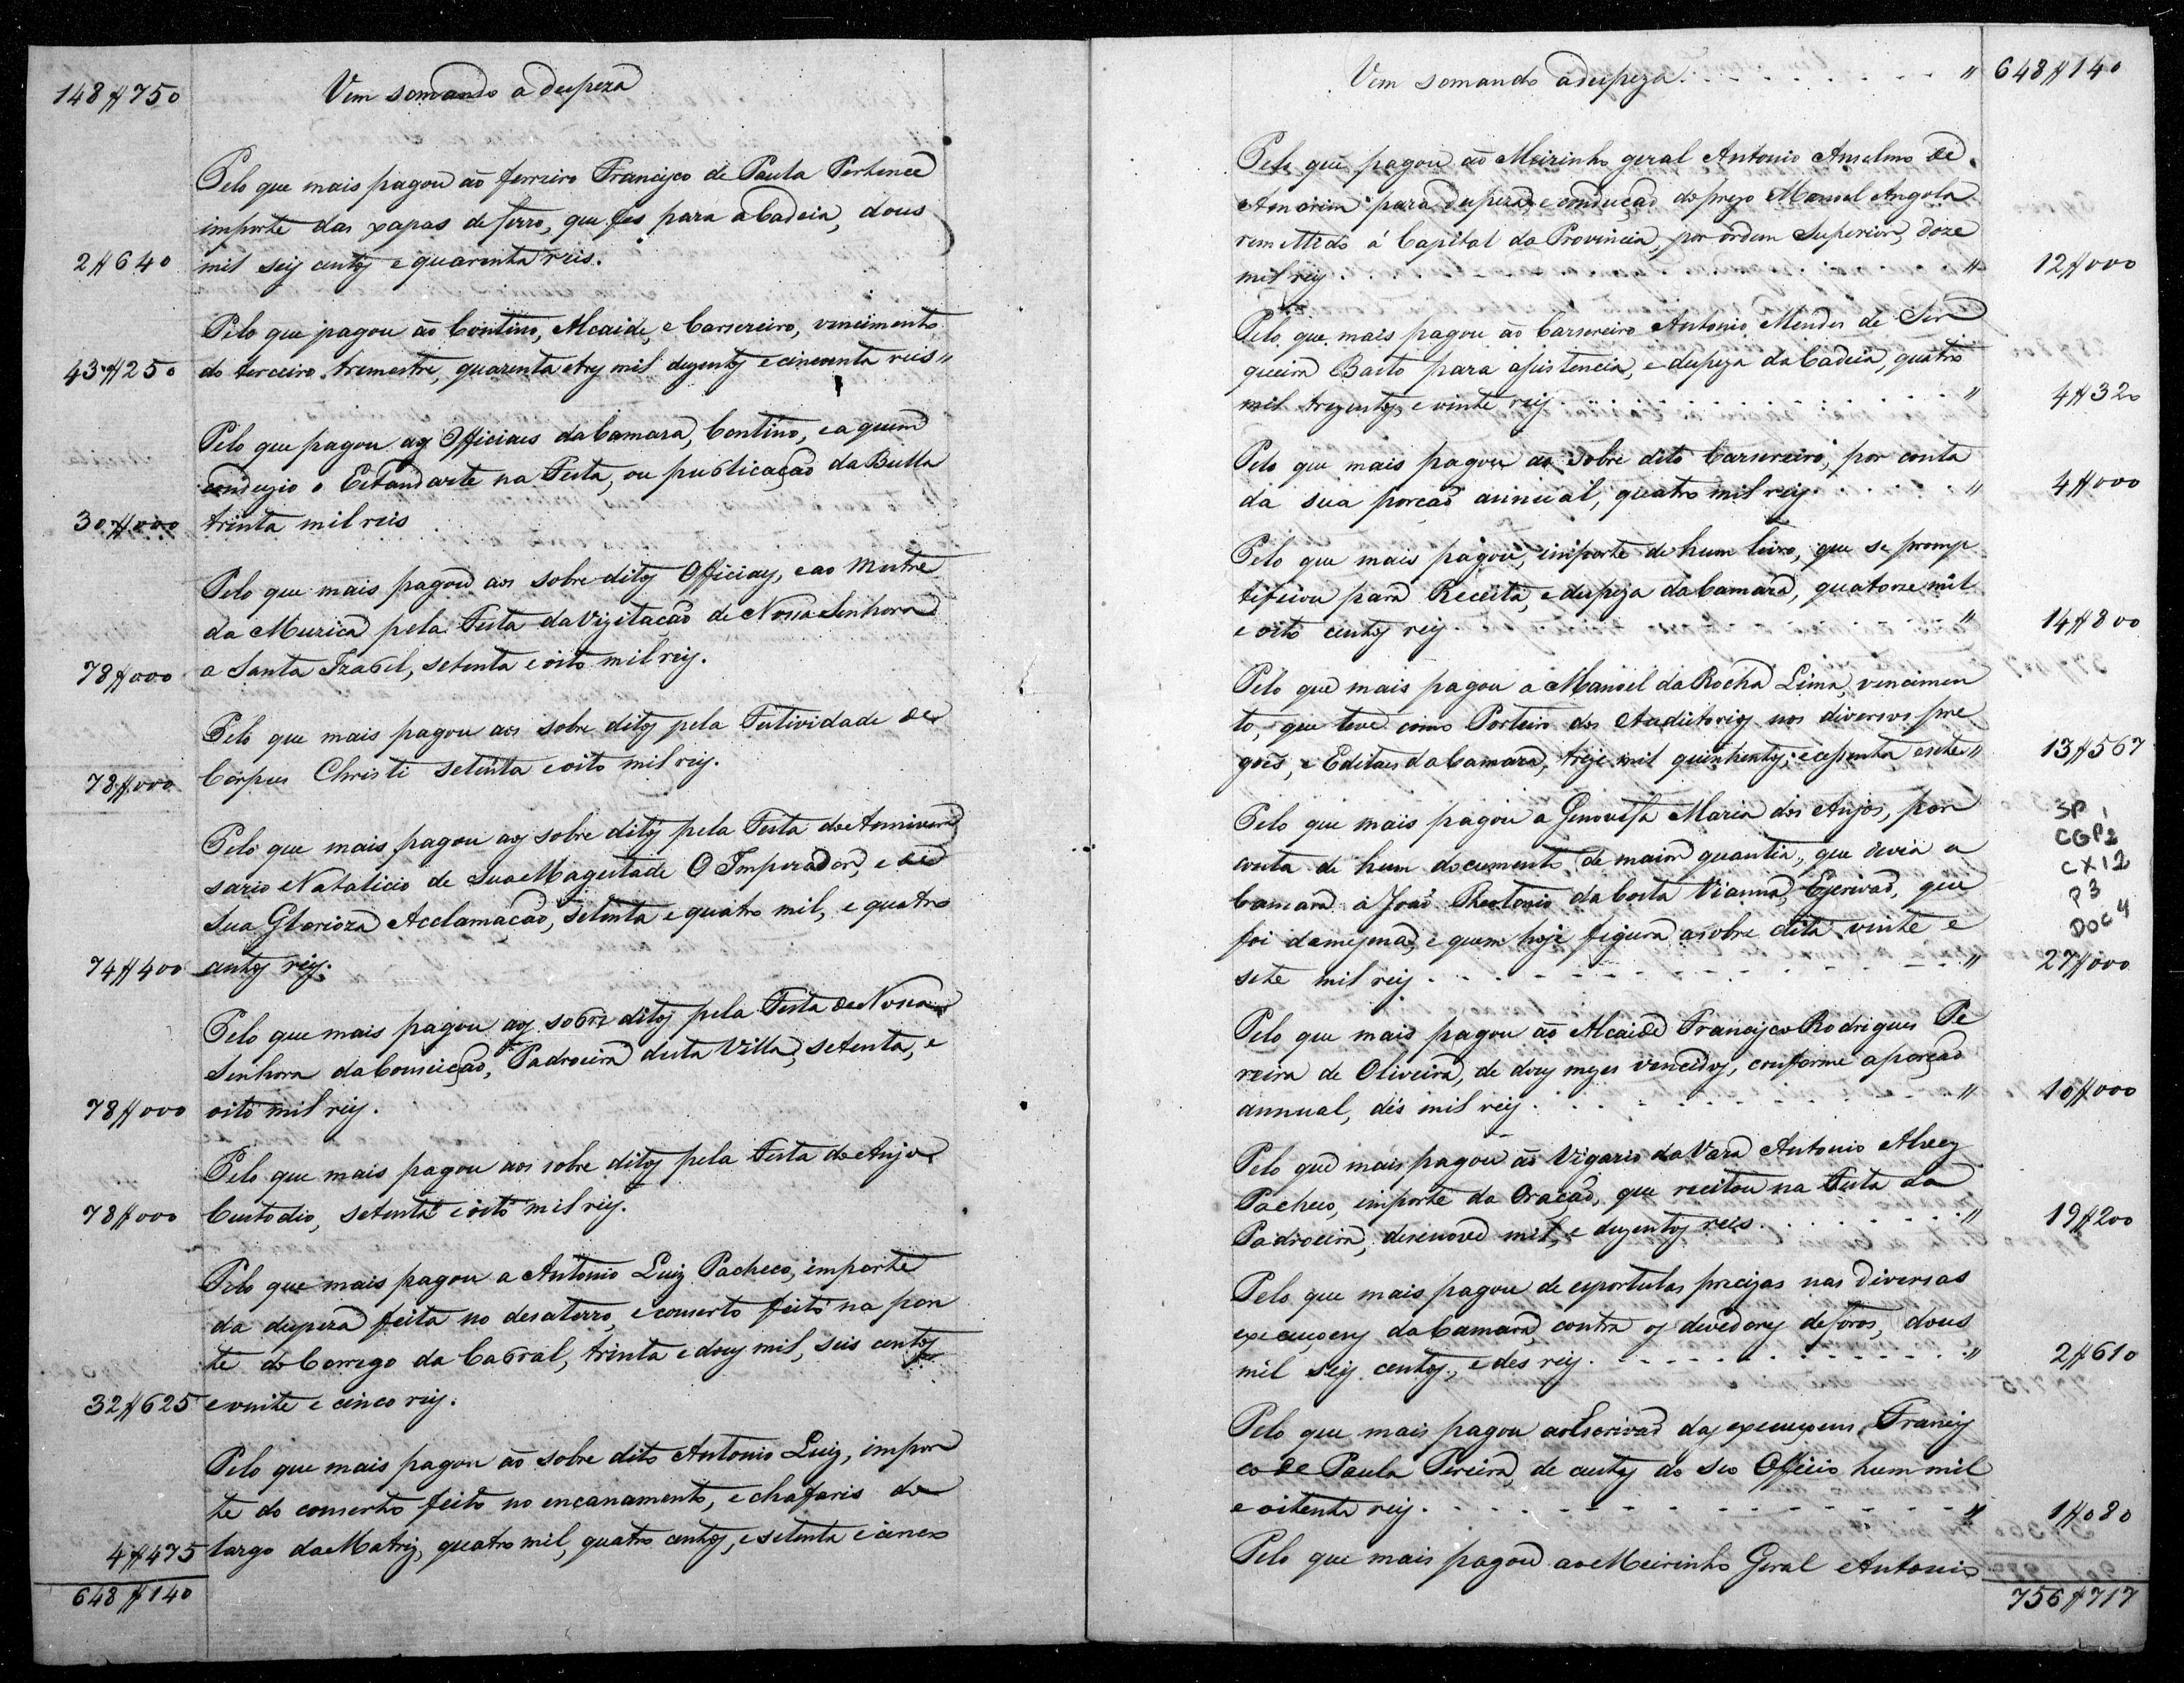 148$750 Vem somando a despeza
Pelo que mais pagou aõ ferreiro Francisco de Paula Pertence
importe das xapas de ferro, que fes para a Cadeia, dous
2$640 mil seis centos e quarenta reis.
Pelo que pagou aõ Contino, Alcaide, e Carsereiro, vencimento
43$250 do terceiro tremestre, quarenta e tres mil duzentos e cincoenta reis "
Pelo que pagou aos Officiaes da Camara, Contino, e a quem
conduzio o Estandarte na Festa, ou publicação da Bulla
30$000 trinta mil reis
Pelo que mais pagou aos sobre ditos Officiaes, e ao Mestre
da Muzica pela Festa da Vizitacaõ de Nossa Senhora
78$000 a Santa Izabel, setenta e oito mil reis.
Pelo que mais pagou aos sobre ditos pela Festividade de
78$000 Corpus Christi setenta e oito mil reis.
Pelo que mais pagou aos sobre ditos pela Festa do Anniver
sario Natalicio de Sua Magestade O Imperador, e de
Sua Glorioza Acclamacaõ, setenta e quatro mil, e quatro
74$400 centos reis.
Pelo que mais pagou aos sobre ditos pela Festa de Nossa
Senhora da Conseição, Padroeira desta Villa, setenta, e
78$000 oito mil reis.
Pelo que mais pagou aos sobre ditos pela Festa do Anjo
78$000 Custodio, setenta e oito mil reis.
Pelo que mais pagou a Antonio Luiz Pacheco, importe
da despeza feita no desaterro, e conserto feito na pon
te do Corrego da Cabral, trinta e dous mil, seis centos
32$625 e vinte e cinco reis.
Pelo que mais pagou aõ sobre dito Antonio Luiz, impor
te do conserto feito no encanamento, e chafaris do
4$475 largo da Matriz, quatro mil, quatro centos, e setenta e cinco
648$140
Vem somando a despeza. " 648$140
Pelo que pagou aõ Meirinho geral Antonio Anselmo de
Amorim para despeza, e conducaõ do prezo Manoel Angola
remettido á Capital da Provincia, por ordem Superior, doze
mil reis. " 12$000
Pelo que mais pagou aõ Carsereiro Antonio Mendes de Ser
queira Basto para asistencia, e despeza da Cadeia, quatro
mil trezentos, e vinte reis. " 4$320
Pelo que mais pagou ao sobre dito Carsereiro, por conta
da sua porcaõ annual, quatro mil reis. " 4$000
Pelo que mais pagou, importe de hum livro, que se promp
teficou para Receita, e despeza da Camara, quatorse mil
e oito centos reis. " 14$800
Pelo que mais pagou a Manoel da Rocha Lima, vencimen
to, que teve como Porteiro dos Auditorios nos diversos pre
goẽs, e Editaes da Camara, treze mil quinhentos, e cessenta e sete " 13$567
Pelo que mais pagou a Genovessa Maria dos Anjos, por
conta de hum documento de maior quantia, que devia a
Camara a Joaõ Theotonio da Costa Vianna, Escrivaõ, que
foi da mesma, e quem hoje figura a sobre dita vinte e
sete mil reis. " 27$000
SP
CGP2
CX12
P3
DOC 4
Pelo que mais pagou aõ Alcaide Francisco Rodrigues Pe
reira de Oliveira, de dous mezes vencidos, conforme a porçaõ
annual, dés mil reis. " 10$000
Pelo que mais pagou aõ Vigario da Vara Antonio Alvez
Pacheco, importe da Oração, que recitou na Festa da
Padroeira, desenove mil, e duzentos reis. " 19$200
Pelo que mais pagou de esportulas precizas nas diversas
execuçoens da Camara, contra os devedores de foros, dous
mil seis centos, e des reis. " 2$610
Pelo que mais pagou ao Escrivaõ das execuçoens Francis
co de Paula Pereira, de custas do seo Officio hum mil
e oitenta reis. " 1$080
Pelo que mais pagou ao Meirinho Geral Antonio
756$717